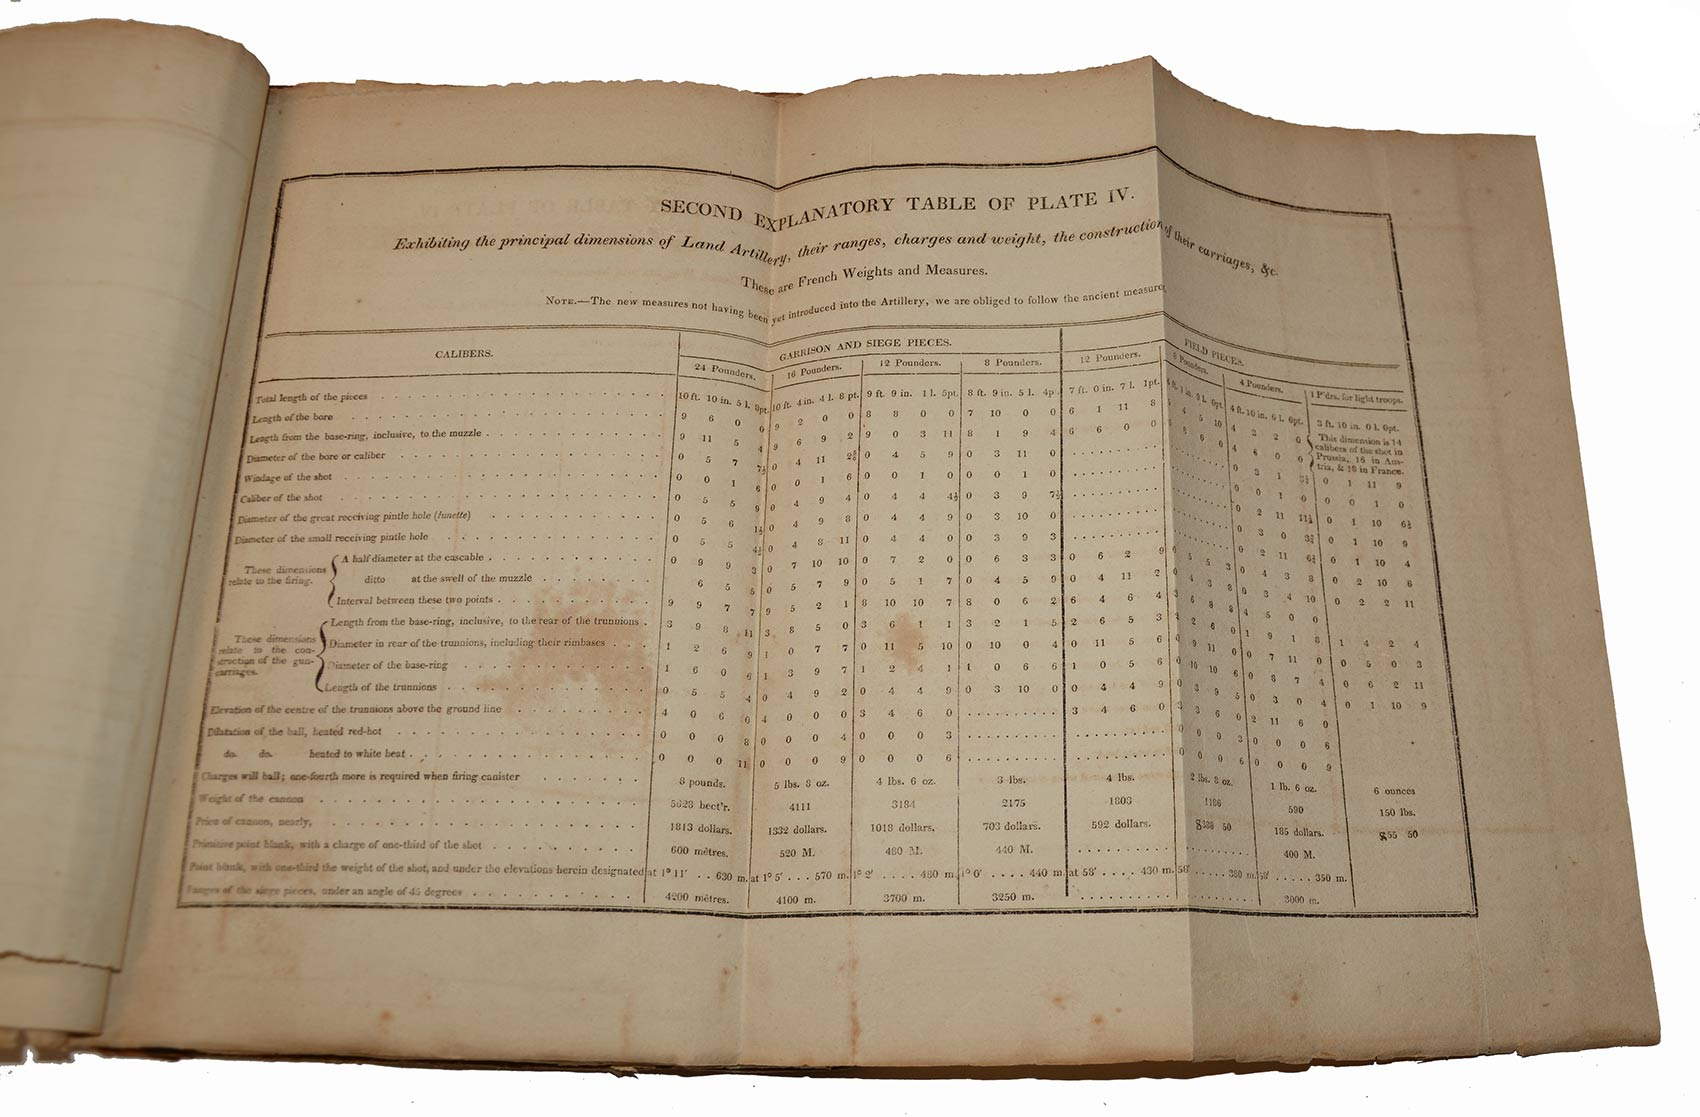 SECOND EXPLANATORY TABLE OF PLATE IV.
Exhibiting the principal dimensions of Land Artillery, their ranges, charges and weight, the construction of their carriages, &c.
These are French Weights and Measures.
NOTE.—The new measures not having been yet introduced into the Artillery, we are obliged to follow the ancient measure.
CALIBERS. GARRISON AND SIEGE PIECES. FIELD PIECES.
24 Pounders. 16 Pounders. 12 Pounders. 8 Pounders. 12 Pounders. 8 Pounders. 4 Pounders. 1 P'drs. for light troops.
Total length of the pieces 10 ft. 10 in. 5 l. 10 ft. 4 in. 4 l. 8 pt. 9 ft. 9 in. 1 l. 5pt. 8 ft. 9 in. 5 l. 4p 7 ft. 0 in. 7 l. 1pt. 4 ft. 10 in. 6 l. 6pt. 3 ft. 10 in. 0 l. 0pt.
Length of the bore 9 6 0 0 9 2 0 0 8 8 0 0 7 10 0 0 6 1 11 8 4 3 2 0 This dimension is 14 calibers of the shot in Prussia, 16 in Austria, & 18 in France.
Length from the base-ring, inclusive, to the muzzle 9 11 5 4 9 6 9 2 9 0 3 11 8 1 9 4 6 6 0 0 4 6 0 0
Diameter of the bore or caliber 0 5 7 7½ 0 4 11 0 4 5 9 0 3 11 0 0 3 1 0 1 11 9
Windage of the shot 0 0 1 6 0 0 1 6 0 0 1 0 0 0 1 0 0 0 1 0 0 0 1 0
Caliber of the shot 0 5 5 9 0 4 9 4 0 4 4 4½ 0 3 9 7½ 0 2 11 11½ 0 1 10 6½
Diameter of the great receiving pintle hole (lunette) 0 5 6 1½ 0 4 9 8 0 4 4 9 0 3 10 0 0 3 0 0 1 10 9
Diameter of the small receiving pintle hole 0 5 5 4½ 0 4 8 11 0 4 4 0 0 3 9 3 0 2 11 0 1 10 4
These dimensions relate to the firing.
A half diameter at the cascable 0 9 9 3 0 7 10 10 0 7 2 0 0 6 3 3 0 6 2 9 0 4 3 8 0 2 10 6
ditto at the swell of the muzzle 6 5 5 0 5 7 9 0 5 1 7 0 4 5 9 0 4 11 2 0 3 4 10 0 2 2 11
Interval between these two points 9 9 7 7 9 5 2 1 8 10 10 7 8 0 6 2 6 4 6 4 4 5 0 0
These dimensions relate to the construction of the gun-carriages.
Length from the base-ring, inclusive, to the rear of the trunnions 3 9 8 11 3 8 5 0 3 6 1 1 3 2 1 5 2 6 5 3 1 9 1 8 1 4 2 4
Diameter in rear of the trunnions, including their rimbases 1 2 6 9 1 0 7 7 0 11 5 10 0 10 0 4 0 11 5 6 0 9 11 0 0 7 11 0 0 5 0 3
Diameter of the base-ring 1 6 0 6 1 3 9 7 1 2 4 1 1 0 6 6 1 0 5 6 0 10 10 6 0 8 7 4 0 6 2 11
Length of the trunnions 0 5 5 4 0 4 9 2 0 4 4 9 0 3 10 0 0 4 4 9 0 3 9 5 0 3 0 4 0 1 10 9
Elevation of the centre of the trunnions above the ground line 4 0 6 0 4 0 0 0 3 4 6 0 3 4 6 0 3 3 6 0 2 11 6 0
Dilatation of the ball, heated red-hot 0 0 0 8 0 0 0 4 0 0 0 3 0 0 0 3 0 0 0 6
do. do. heated to white heat 0 0 0 11 0 0 0 9 0 0 0 6 0 0 0 6 0 0 0 9
Charges will ball; one-fourth more is required when firing canister 8 pounds. 5 lbs. 8 oz. 4 lbs. 6 oz. 3 lbs. 4 lbs. 2 lbs. 8 oz. 1 lb. 6 oz. 6 ounces
Weight of the cannon 5628 hect'r. 4111 3184 2175 1808 1186 590 150 lbs.
Price of cannon, nearly, 1813 dollars. 1332 dollars. 1018 dollars. 703 dollars. 592 dollars. $388 50 185 dollars. $55 50
Primitive point blank, with a charge of one-third of the shot 600 mètres. 520 M. 480 M. 440 M. 400 M.
Point blank, with one-third the weight of the shot, and under the elevations herein designated at 1° 11' . . 630 m. at 1° 5' . . . 570 m. 1° 2' . . . . . 480 m. 1° 0' . . . . 440 m at 58' . . . . 430 m. 58' . . . . . 380 m. 58' . . . . . 350 m.
Ranges of the siege pieces, under an angle of 45 degrees 4200 mètres. 4100 m. 3700 m. 3250 m. 3000 m.